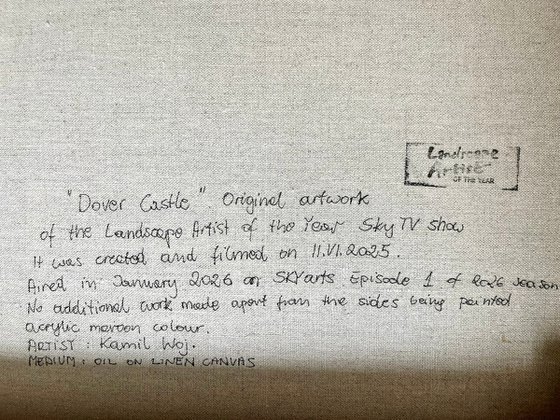 Landscape
Artist
OF THE YEAR
"Dover Castle" Original artwork
of the Landscape Artist of the Year Sky TV show
It was created and filmed on 11.VI.2025.
Aired in January 2026 on SKY arts Episode 1 of 2026 season
No additional work made apart from the sides being painted
acrylic maroon colour.
ARTIST : Kamil Woj.
MEDIUM : OIL ON LINEN CANVAS